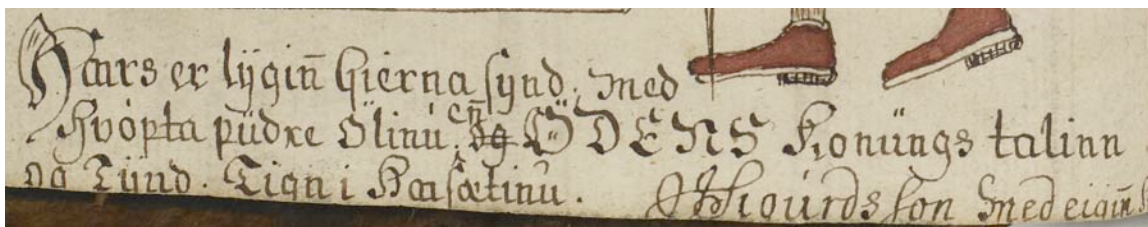 Hárs er lýgin̄ hierna synd. med
Hvópta püdre Ölinú. en̄ og ÖDENS Konüngs talinn
og Tijnd. Tign i Hásætinú. Sigúrdsson med eigin̄